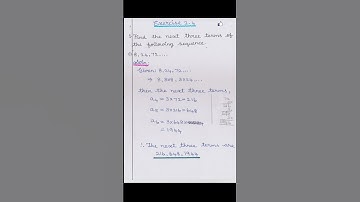 Exercise 2.4
Find the next three terms of
the following sequence.
8, 24, 72, ....
Soln:
Given: 8, 24, 72 ....
⇒ 8, 8×3, 24×3 ....
then the next three terms,
a₄ = 3×72 = 216
a₅ = 3×216 = 648
a₆ = 3×648
= 1944
∴ The next three terms are
216, 648, 1944